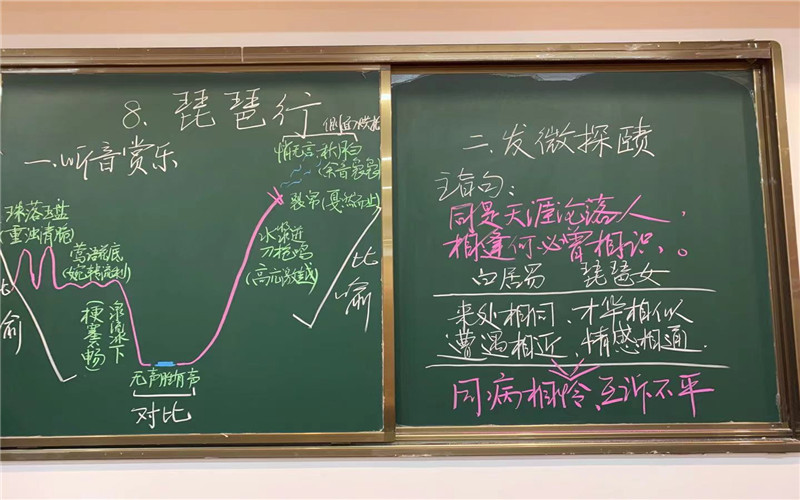 8.琵琶行
一.听音赏乐
侧面
悄无言、秋月白
(余音袅袅)
裂帛(戛然而止)
水浆迸
刀枪鸣
(高亢激越)
比喻
珠落玉盘
(重浊清脆)
莺语花底
(婉转流利)
泉流冰下
(梗塞不畅)
无声胜有声
对比
喻
二.发微探赜
主旨句:
同是天涯沦落人,
相逢何必曾相识。
白居易 琵琶女
来处相同、才华相似
遭遇相近、情感相通
同病相怜、互诉不平